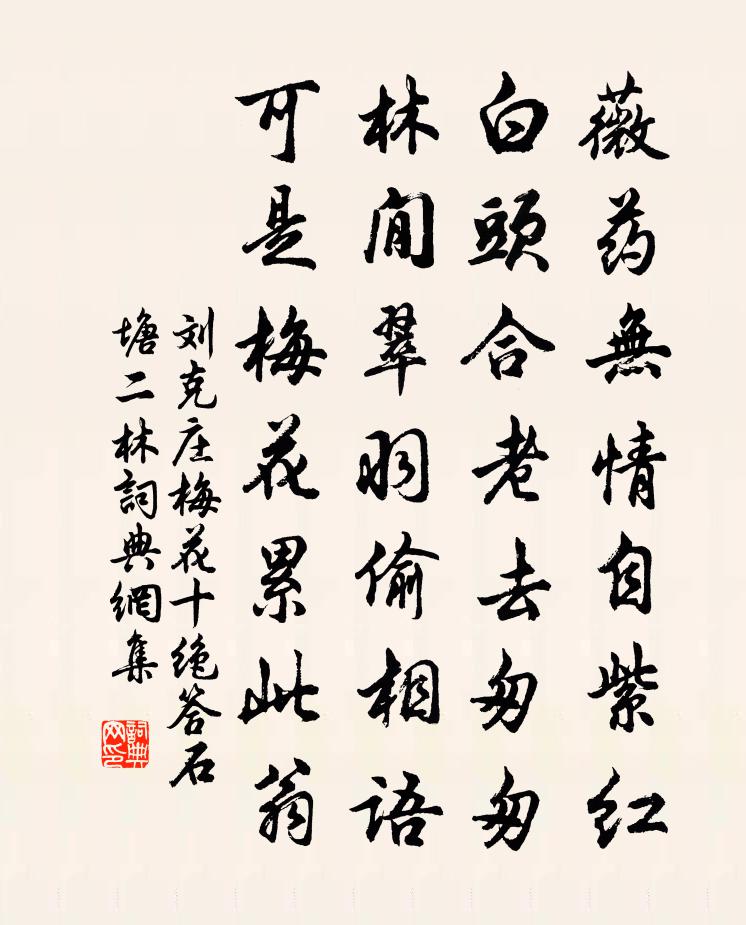 薇药無情自紫红
白頭合老去匆匆
林間翠羽偷相語
可是梅花累此翁
刘克庄梅花十绝答石
塘二林詞典網集
詞典
网印